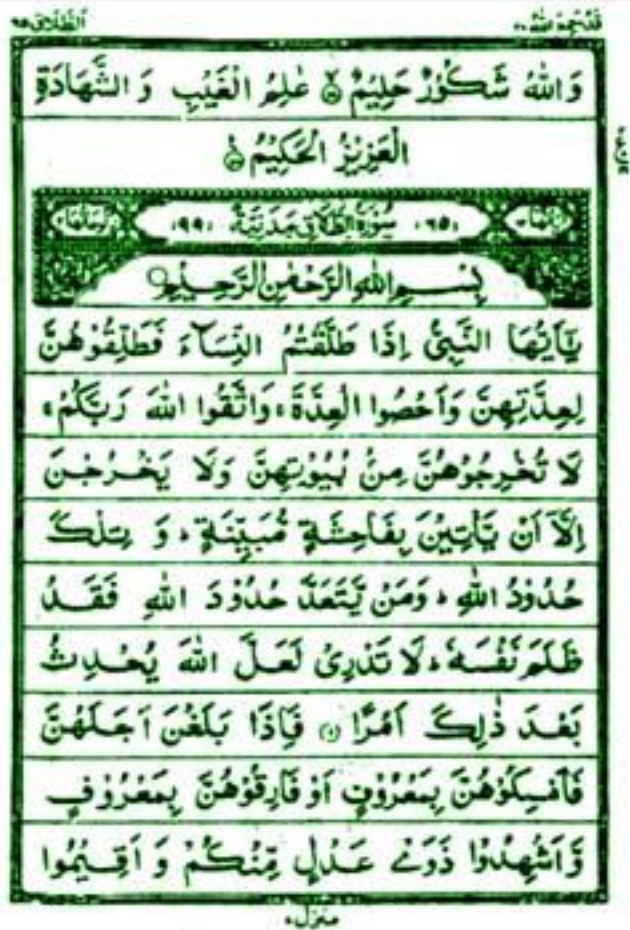 قَدْ سَمِعَ اللّٰهُ ٢٨ الطَّلَاق ٦٥
وَاللّٰهُ شَكُوْرٌ حَلِيْمٌ ۝ عٰلِمُ الْغَيْبِ وَ الشَّهَادَةِ
الْعَزِيْزُ الْحَكِيْمُ ۝
(٦٥) سُوْرَةُ الطَّلَاقِ مَدَنِيَّةٌ (٩٩)
بِسْمِ اللّٰهِ الرَّحْمٰنِ الرَّحِيْمِ
يٰۤاَيُّهَا النَّبِىُّ اِذَا طَلَّقْتُمُ النِّسَآءَ فَطَلِّقُوْهُنَّ
لِعِدَّتِهِنَّ وَاَحْصُوا الْعِدَّةَ ۚ وَاتَّقُوا اللّٰهَ رَبَّكُمْ ۚ
لَا تُخْرِجُوْهُنَّ مِنْۢ بُيُوْتِهِنَّ وَلَا يَخْرُجْنَ
اِلَّاۤ اَنْ يَّاْتِيْنَ بِفَاحِشَةٍ مُّبَيِّنَةٍ ؕ وَ تِلْكَ
حُدُوْدُ اللّٰهِ ؕ وَمَنْ يَّتَعَدَّ حُدُوْدَ اللّٰهِ فَقَدْ
ظَلَمَ نَفْسَهٗ ؕ لَا تَدْرِىْ لَعَلَّ اللّٰهَ يُحْدِثُ
بَعْدَ ذٰلِكَ اَمْرًا ۝ فَاِذَا بَلَغْنَ اَجَلَهُنَّ
فَاَمْسِكُوْهُنَّ بِمَعْرُوْفٍ اَوْ فَارِقُوْهُنَّ بِمَعْرُوْفٍ
وَّاَشْهِدُوْا ذَوَىْ عَدْلٍ مِّنْكُمْ وَ اَقِيْمُوا
منزل ٧